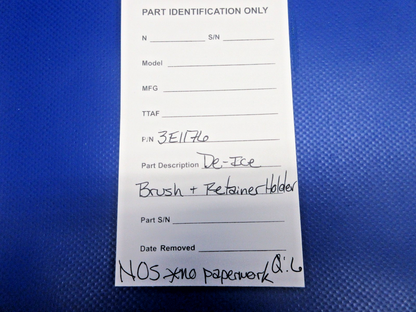 PART IDENTIFICATION ONLY
N S/N
Model
MFG
TTAF
P/N 3E1176
Part Description De-Ice
Brush + Retainer Holder
Part S/N
Date Removed
NOS no paperwork Q:6